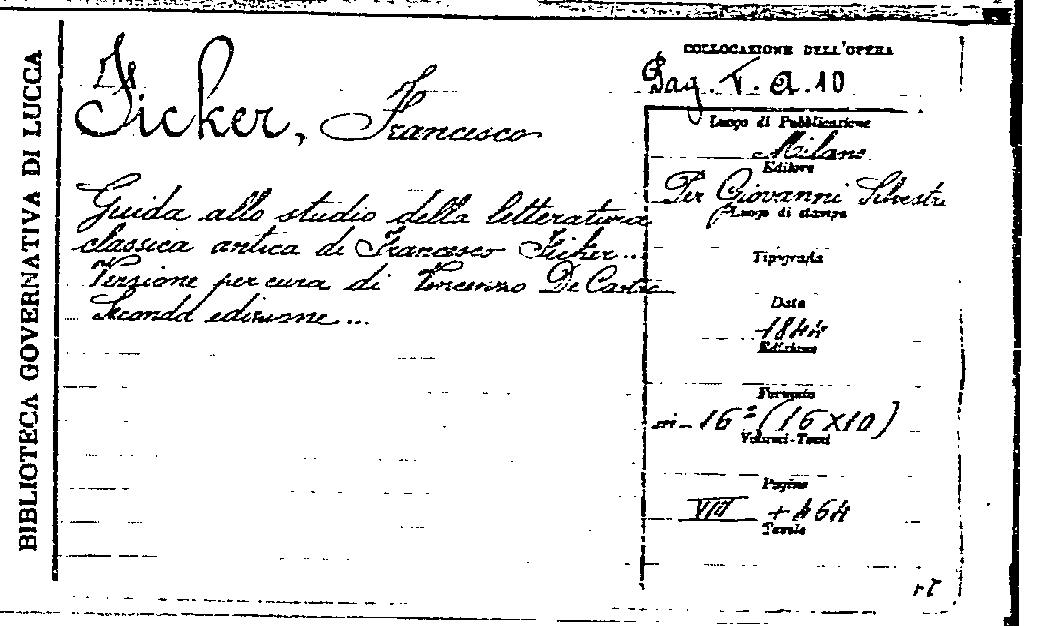 BIBLIOTECA GOVERNATIVA DI LUCCA
Ficker, Francesco
Guida allo studio della letteratura
classica antica di Francesco Ficker...
Versione per cura di Vincenzo De Castro
Seconda edizione...
COLLOCAZIONE DELL'OPERA
Pag. T. A. 10
Luogo di Pubblicazione
Milano
Editore
Per Giovanni Silvestri
Luogo di stampa
Tipografia
Data
1844
Edizione
Formato
in-16° (16x10)
Volumi-Tomi
Pagine
VIII + 464
Tavole